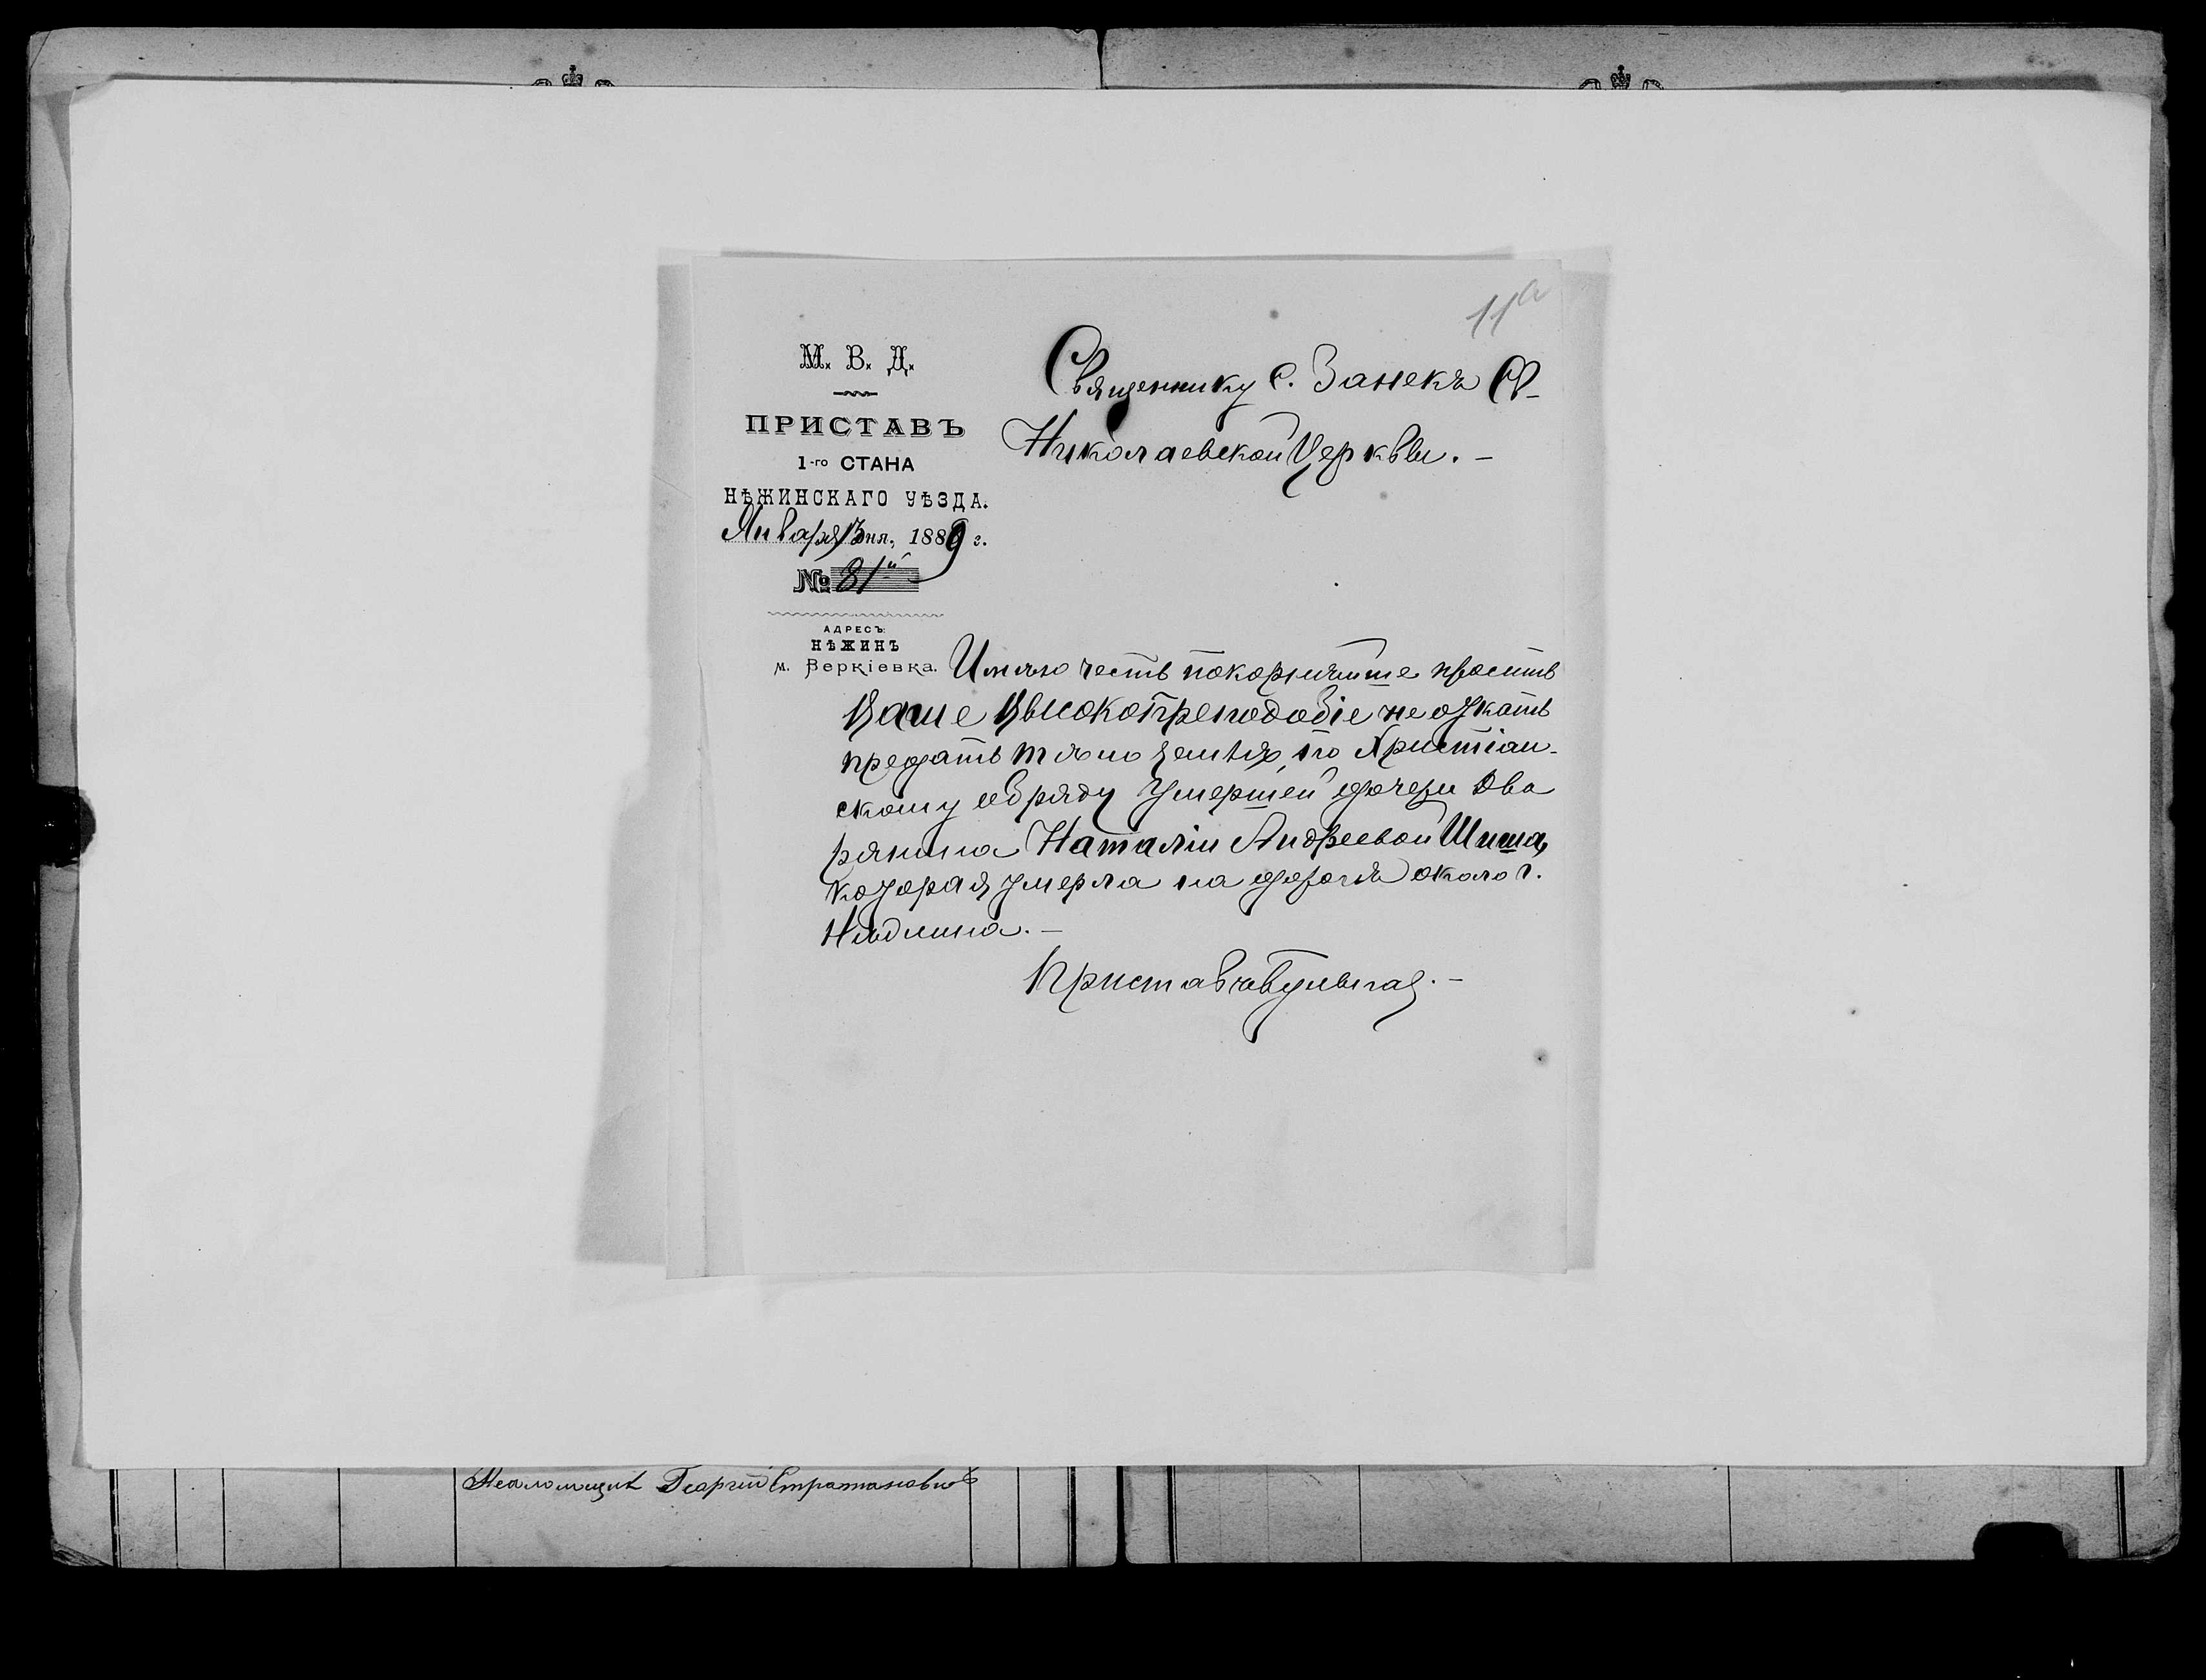 11а
М. В. Д.
ПРИСТАВЪ
1-го СТАНА
НѢЖИНСКАГО УѢЗДА.
Января 13 дня, 1889 г.
№ 81
АДРЕСЪ:
НѢЖИНЪ
м. Веркіевка.
Священнику с. Занекъ Св-
Николаевской Церкви. –
Имѣю честь покорнѣйше просить
Ваше Высокопреподобіе не отказать
предать тѣло землѣ, по Христіан-
скому обряду умершей дочери Дво
рянина Наталіи Андреевой Шиша,
которая умерла на дорогѣ около г.
Нѣжина. –
Приставъ
Псаломщикъ Георгій Стратановичъ